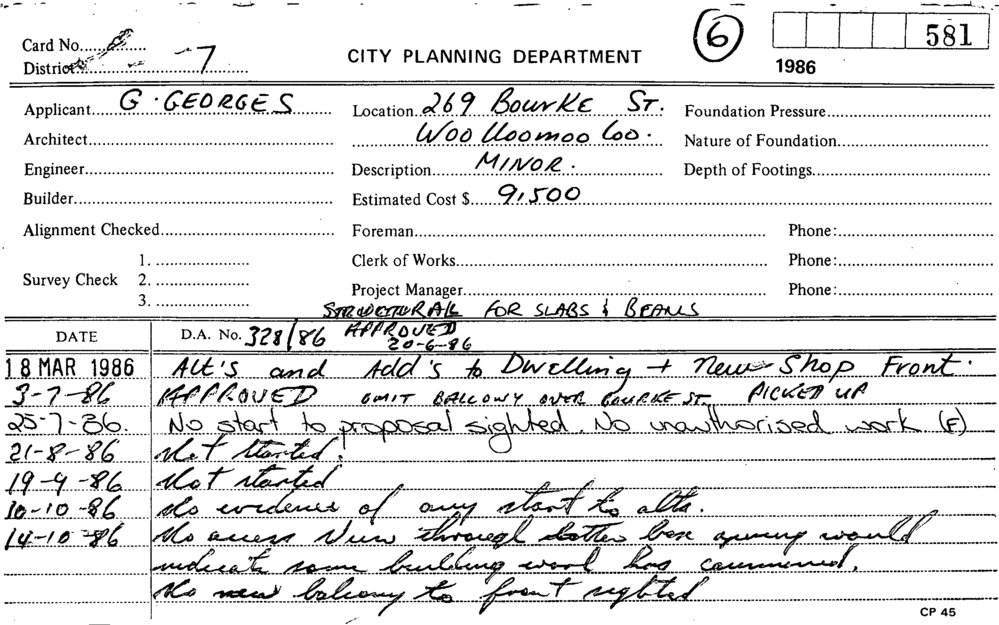 Card No.....
6
581
District..... 7
CITY PLANNING DEPARTMENT
1986
Applicant.... G. GEORGES
Location. 269 BOURKE ST.
Foundation Pressure
Architect
Woolloomooloo.
Nature of Foundation
Engineer
Description MINOR.
Depth of Footings
Builder
Estimated Cost $ 9,500
Alignment Checked
Foreman
Phone:
Survey Check
1.
2.
3.
Clerk of Works
Phone:
Project Manager
Phone:
STRUCTURAL FOR SLABS & BEAMS
DATE
D.A. No. 328/86
APPROVED
20-6-86
18 MAR 1986 Alt's and Add's to Dwelling + New Shop Front.
3-7-86 APPROVED OMIT BALCONY OVER BOURKE ST. PICKED UP
25-7-86. No start to proposal sighted. No unauthorised work (E)
21-8-86 Not started.
19-9-86 Not started
10-10-86 No evidence of any start to alts.
14-10-86 No access View through letter box opening would
indicate some building work has commenced.
No new balcony to front sighted
CP 45